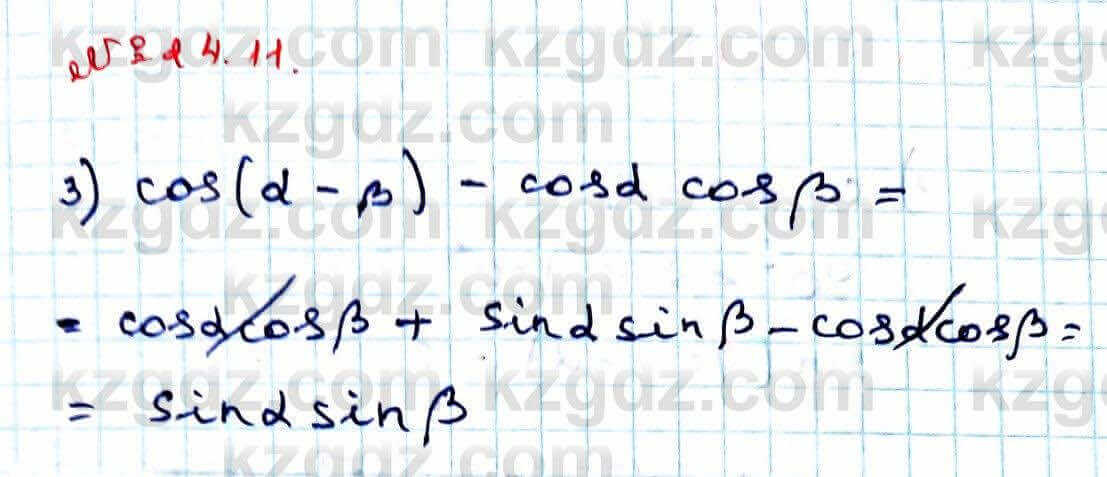 № 24.11.
3) cos(α - β) - cosα cosβ =
= cosα cosβ + sinα sinβ - cosα cosβ =
= sinα sinβ
kzgdz.com